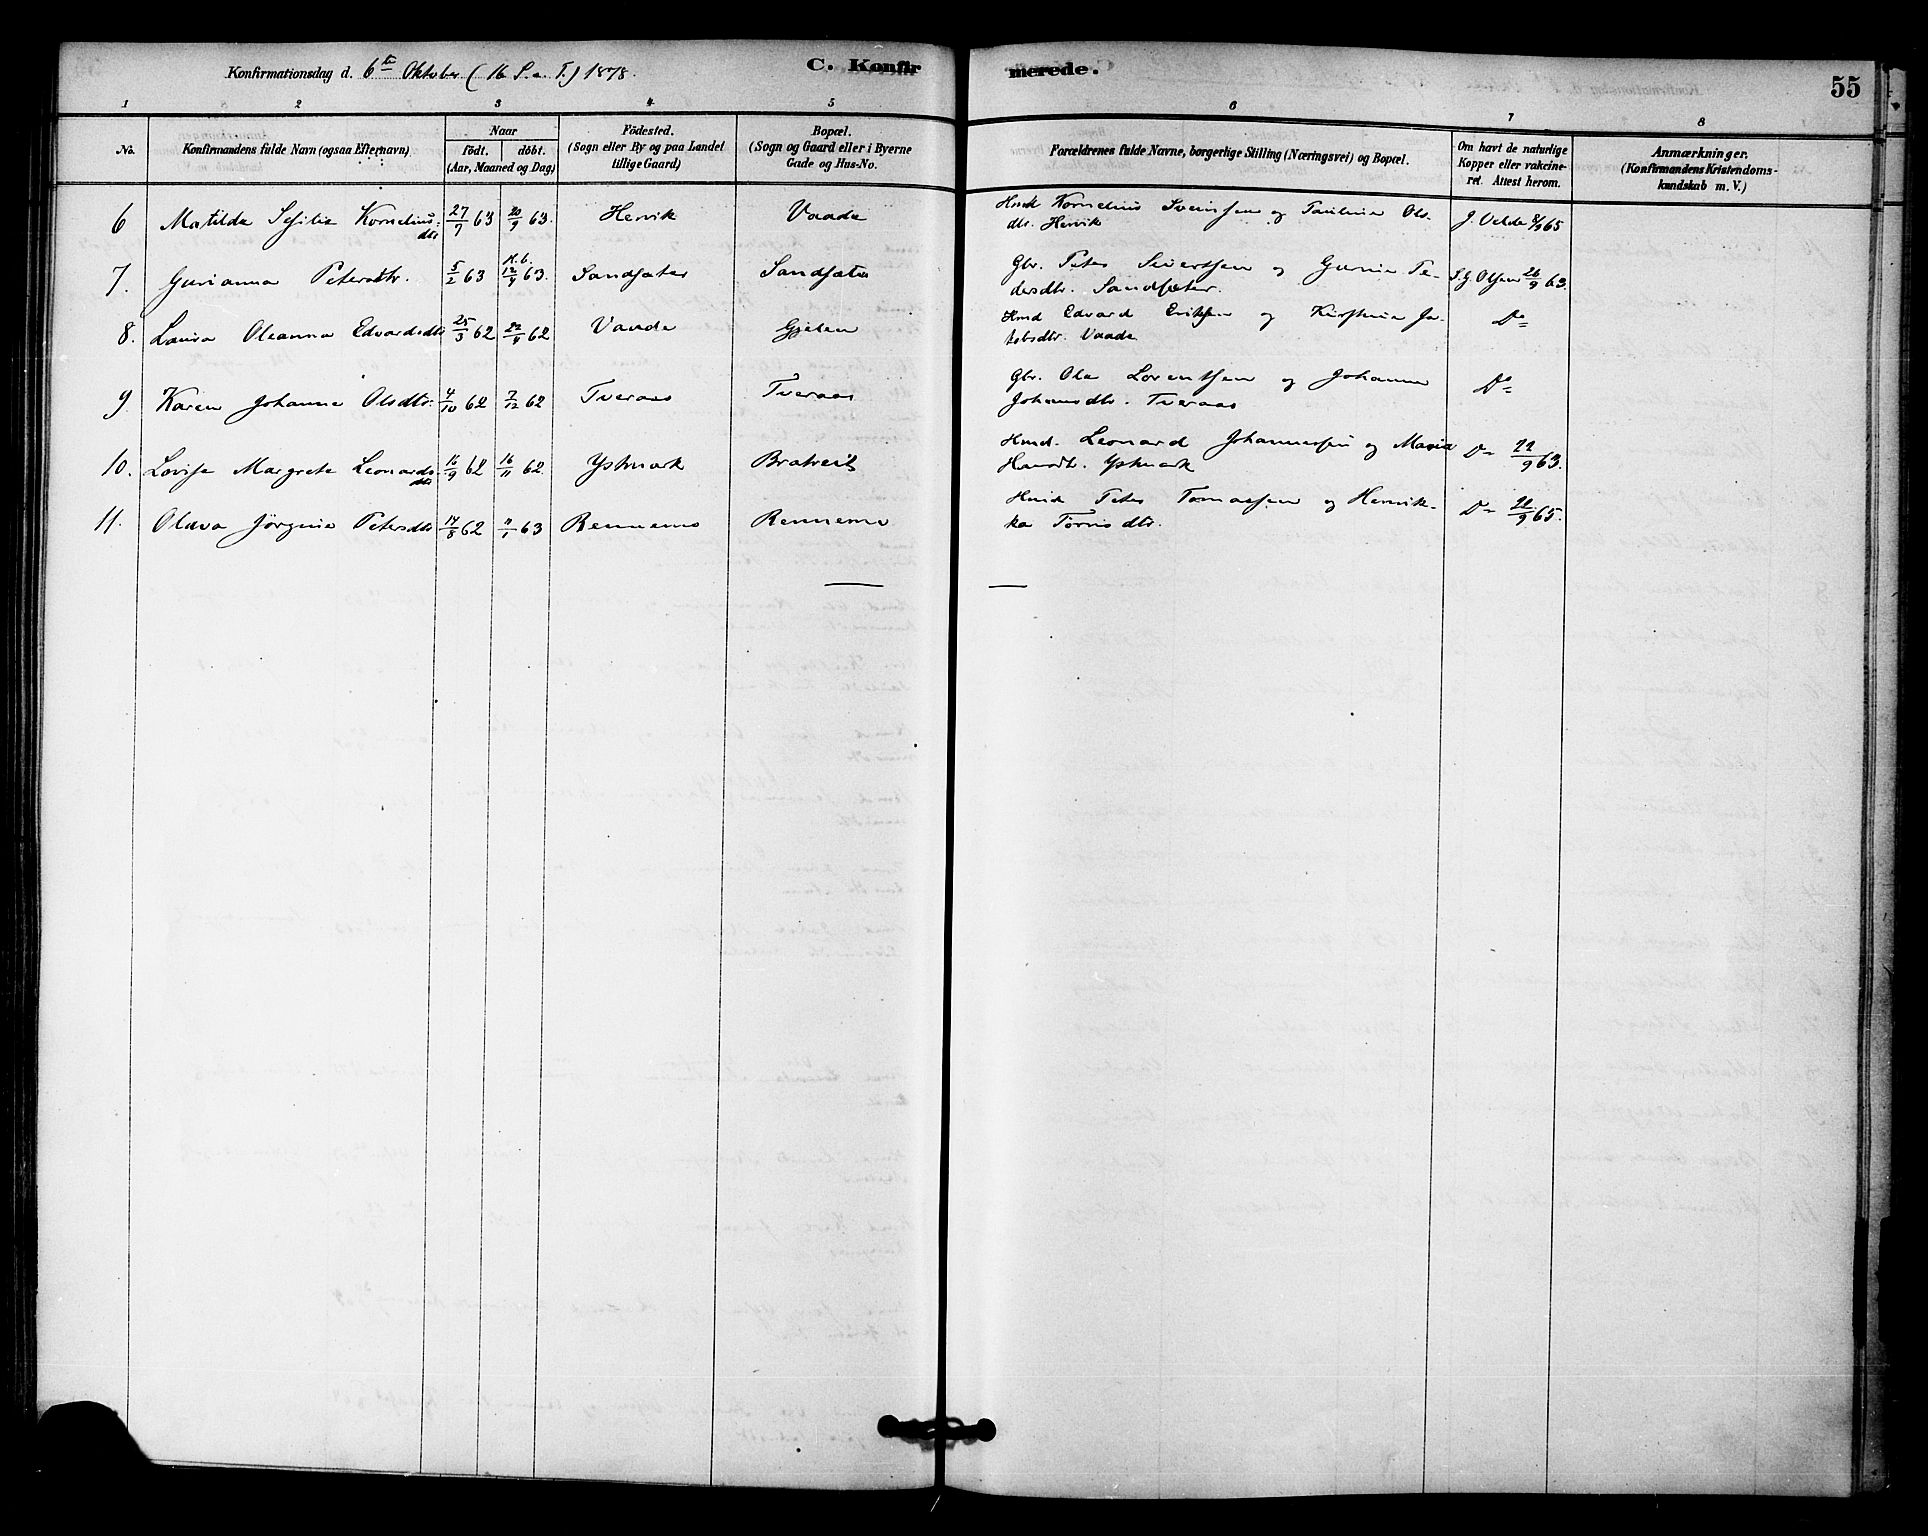 Konfirmationsdag d. 6te Oktober (16 S. e. T.) 1878.
C. Konfirmerede.
55
1 2 3 4 5 6 7 8
No.
Konfirmandens fulde Navn (ogsaa Efternavn)
Naar
födt. döbt.
(Aar, Maaned og Dag)
Födested.
(Sogn eller By og paa Landet
tillige Gaard)
Bopæl.
(Sogn og Gaard eller i Byerne
Gade og Hus-No.
Forældrenes fulde Navne, borgerlige Stilling (Næringsvei) og Bopæl.
Om havt de naturlige
Kopper eller vakcine-
ret. Attest herom.
Anmærkninger.
(Konfirmandens Kristendoms-
kundskab m. V.)
6 Matilda Kornelius- 27/7 63 20/9 63. Henvik Vaade Hmd Kornelius Svensen og Paulina Ols- J. Velde 65
dtr dtr. Henvik
7. Gurianna Petersdtr. 5/2 63 N.b. 12/4 63. Sandsæter Sandsæter Gbr. Peter Sivertsen og Gurina Pe- Olsen 26/9 63.
dersdtr. Sandsæter.
8. Laura Oleanna Edvardsdtr 25/3 62 62 Vaade Gjelen Hmd Edvard Eriksen og Kirstina Ja- Do
kobsdtr. Vaade
9 Karen Johanna Olsdtr. 4/10 62 7/12 62 Tveraas Tveraas Gbr. Ola Lorentsen og Johanna Do
Johansdtr. Tveraas
10. Lovise Margrete Leonards- 16/9 62 16/11 62. Ystmark Bratreit Hmd. Leonard Johannessen og Maria Do 22/9 63.
dtr Hansdtr. Ystmark
11. Oldva Jörgine Petersdtr 14/8 62 11/1 63 Rennemo Rennemo Hmd Peter Tomassen og Henrik- Do 22/9 65.
ka Tørrisdtr.